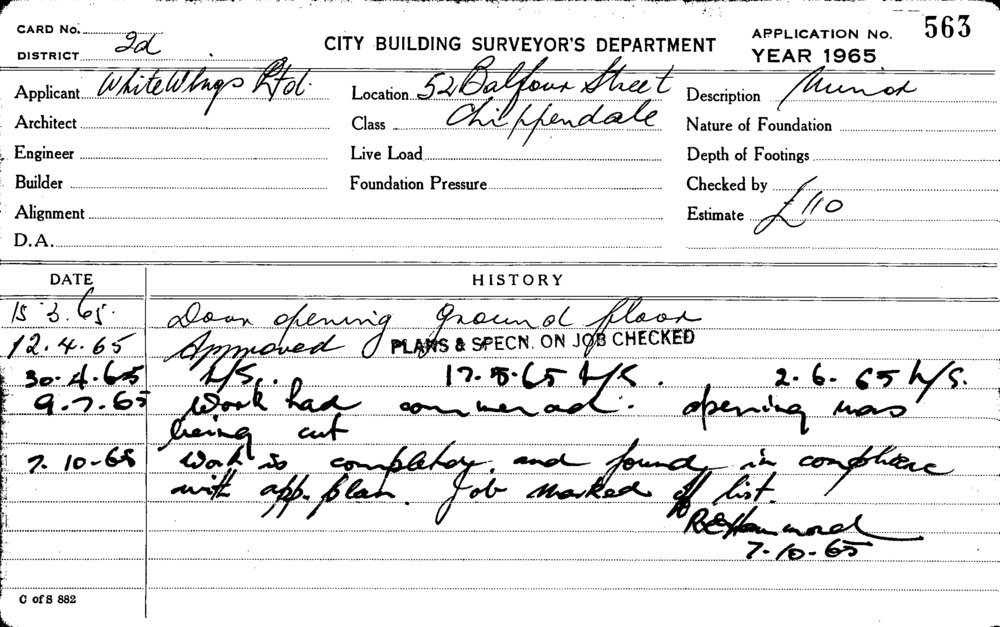 CARD No.
DISTRICT 2d
CITY BUILDING SURVEYOR'S DEPARTMENT
APPLICATION No. 563
YEAR 1965
Applicant White Wings Pty Ltd.
Location 52 Balfour Street
Description Minor
Architect
Class Chippendale
Nature of Foundation
Engineer
Live Load
Depth of Footings
Builder
Foundation Pressure
Checked by
Alignment
Estimate £110
D.A.
DATE HISTORY
15.3.65. Door opening ground floor
12.4.65 Approved PLANS & SPECN. ON JOB CHECKED
30.4.65 N/S. 17.5.65 N/S. 2.6.65 N/S.
9.7.65 Work had commenced. opening was
being cut
7.10.65 Work is completed, and found in compliance
with app. plan. Job marked off list.
R.E. Hammond
7.10.65
C of S 882